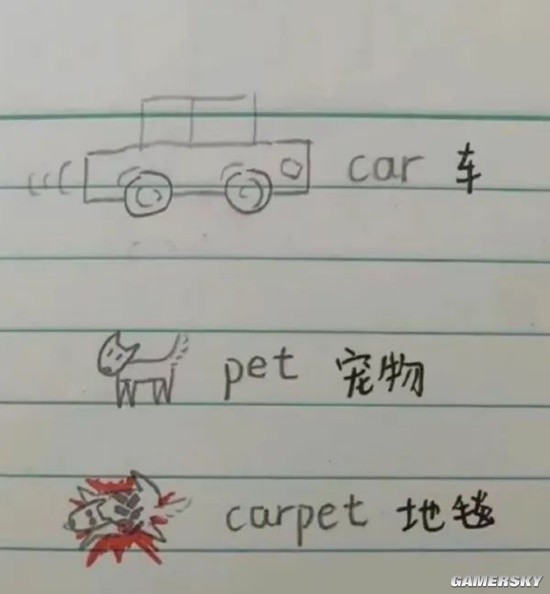 car 车
pet 宠物
carpet 地毯
GAMERSKY